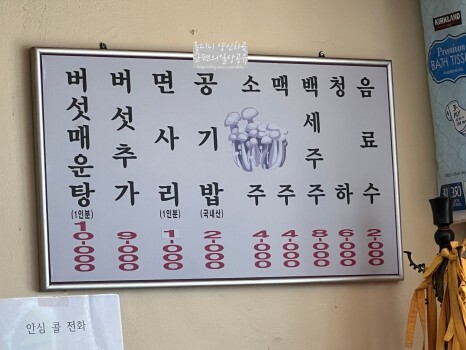 버섯매운탕
(1인분)
10,000
버섯추가
9,000
면사리
(1인분)
1,000
공기밥
(국내산)
2,000
소주
4,000
맥주
4,000
백세주
8,000
청하
6,000
음료수
2,000
안심 콜 전화
KIRKLAND
Premium
BATH TISSUE